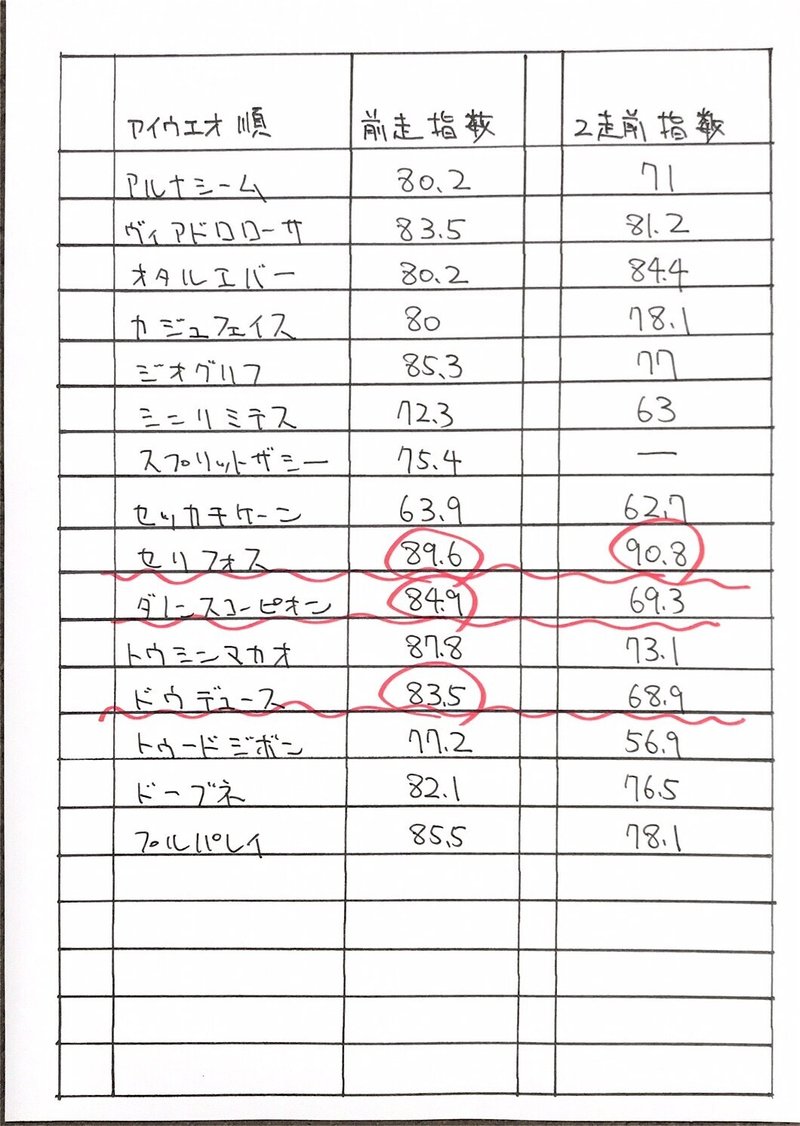 アイウエオ順 前走指数 2走前指数
アルナシーム 80.2 71
ヴィアドロローサ 83.5 81.2
オタルエバー 80.2 84.4
カジュフェイス 80 78.1
ジオグリフ 85.3 77
シニリミテス 72.3 63
スプリットザシー 75.4 —
セッカチケーン 63.9 62.7
セリフォス 89.6 90.8
ダノンスコーピオン 84.9 69.3
トウシンマカオ 87.8 73.1
ドウデュース 83.5 68.9
トゥードジボン 77.2 56.9
ドーブネ 82.1 76.5
プルパレイ 85.5 78.1